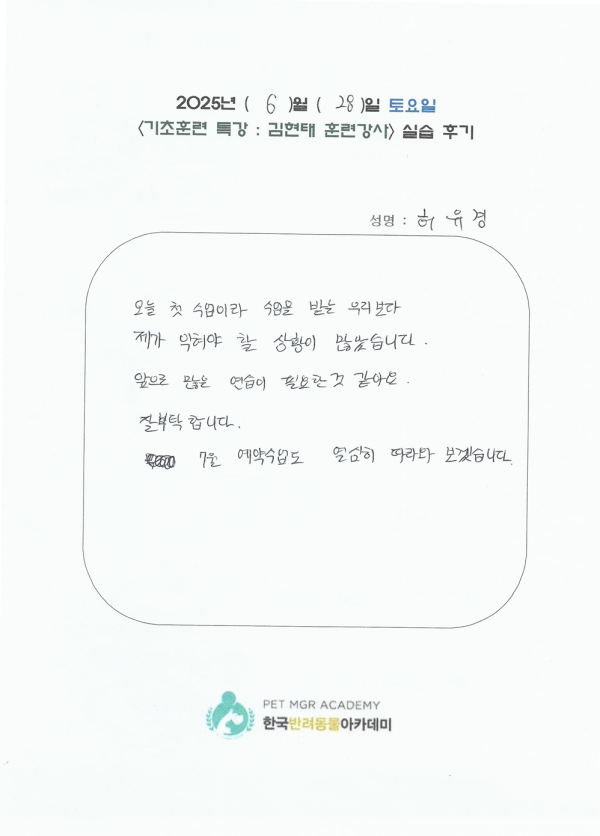 2025년 ( 6 )월 ( 28 )일 토요일
<기초훈련 특강 : 김현태 훈련강사> 실습 후기
성명 : 허유경
오늘 첫 수업이라 수업을 받는 우리보다
제가 익혀야 할 상황이 많았습니다.
앞으로 많은 연습이 필요한것 같아요.
잘부탁합니다.
7월 예약수업도 열심히 따라와 보겠습니다.
PET MGR ACADEMY
한국반려동물아카데미